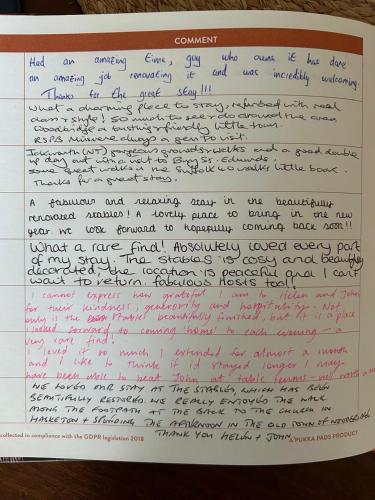 COMMENT
Had an amazing time, guy who owns it has done
an amazing job renovating it and was incredibly welcoming.
Thanks for the great stay!!!
What a charming place to stay, refurbed with real
class & style! So much to see & do around the area
Woodbridge a bustling & friendly little town.
RSPB Minsmere always a good visit.
Ickworth (NT) gorgeous grounds & walks and a good double
up day out with a visit to Bury St. Edmunds.
Some great walks in the Suffolk 40 walks little book.
Thanks for a great stay.
A fabulous and relaxing stay in the beautifully
renovated stables! A lovely place to bring in the new
year. We look forward to hopefully coming back soon!!
What a rare find! Absolutely loved every part
of my stay. The stables is cosy and beautifully
decorated, the location is peaceful and I can't
wait to return. Fabulous hosts too!!
I cannot express how grateful I am to Helen and John
for their kindness, generosity and hospitality. Not
only is the Stable beautifully finished, but it is a place
I looked forward to coming 'home' to each evening - a
very rare find!
I loved it so much I extended for almost a month
and I like to think if I'd stayed longer I may
have been able to beat John at table tennis - well worth a
WE LOVED OUR STAY AT THE STABLES, WHICH HAS BEEN
BEAUTIFULLY RESTORED. WE REALLY ENJOYED THE WALK
ALONG THE FOOTPATH AT THE BACK TO THE CHURCH IN
HASKETON + SPENDING THE AFTERNOON IN THE OLD TOWN OF WOODBRIDGE.
THANK YOU HELEN + JOHN.
collected in compliance with the GDPR legislation 2018
A PUKKA PADS PRODUCT